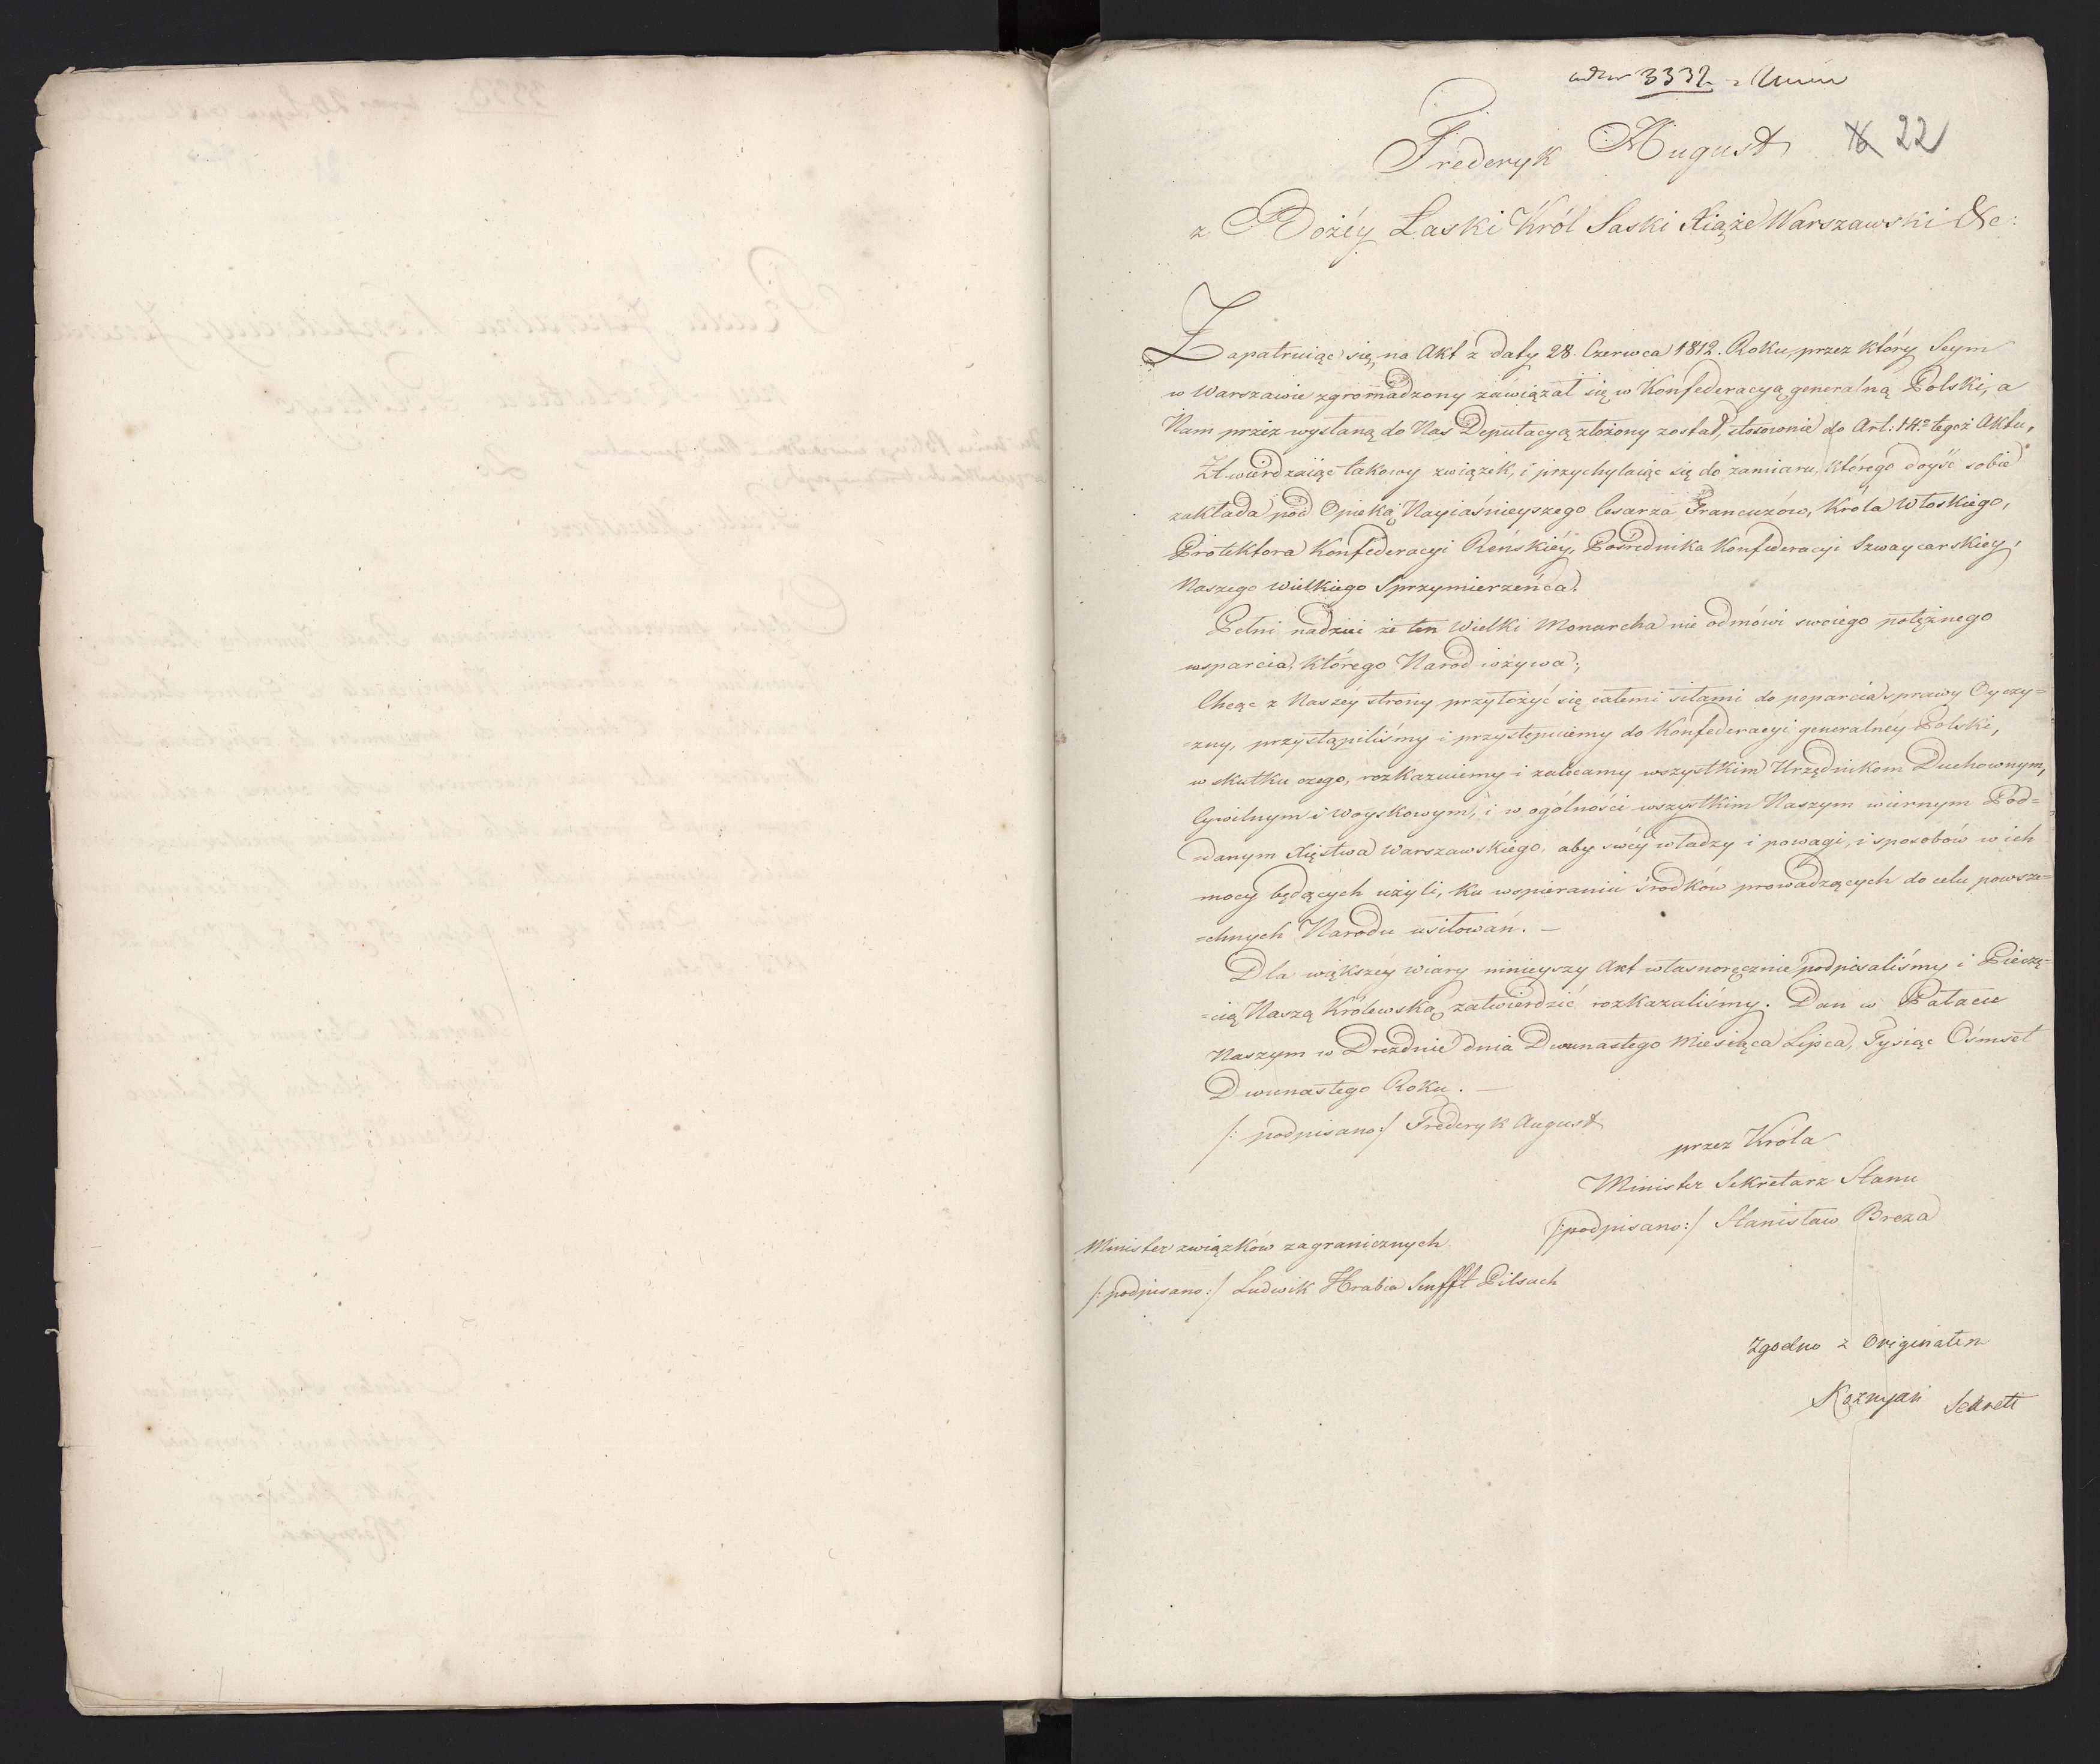 3332
22
Frederyk August
z Bożéy Łaski Król Saski Xiąże Warszawski &c:
Zapatruiąc się na Akt z daty 28. Czerwca 1812. Roku, przez który Seym
w Warszawie zgromadzony zawiązał się w Konfederacyą generalną Polski, a
Nam przez wysłaną do Nas Deputacyą złożony został, stosownie do Art: 14º tegoż Aktu,
Zatwierdzaiąc takowy związek, i przychylaiąc się do zamiaru, którego doyść sobie
zakłada pod Opieką Nayiaśnieyszego Cesarza Francuzów, Króla Włoskiego,
Protektora Konfederacyi Reńskiéy, Pośrednika Konfederacyi Szwaycarskiey,
Naszego Wielkiego Sprzymierzeńca.
Pełni nadziei że ten Wielki Monarcha nie odmówi swoiego potężnego
wsparcia, którego Naród wzywa;
Chcąc z Naszéy strony przyłożyć się całemi siłami do poparcia sprawy Oyczy=
=zny, przystąpiliśmy i przystępuiemy do Konfederacyi generalnéy Polski,
w skutku czego, rozkazuiemy i zalecamy wszystkim Urzędnikom Duchownym,
Cywilnym i Woyskowym, i w ogólności wszystkim Naszym wiernym Pod=
=danym Xięstwa Warszawskiego, aby swéy władzy i powagi, i sposobów w ich
mocy będących użyli, ku wspieraniu środków prowadzących do celu powsze=
=chnych Narodu usiłowań. —
Dla większéy wiary ninieyszy Akt własnoręcznie podpisaliśmy i Pieczę=
=cią Naszą Królewską zatwierdzić rozkazaliśmy. Dan w Pałacu
Naszym w Dreznie dnia Dwunastego Miesiąca Lipca, Tysiąc Ośmset
Dwunastego Roku. —
/: podpisano:/ Frederyk August
przez Króla
Minister Sekretarz Stanu
/:podpisano:/ Stanisław Breza
Minister związków zagranicznych
/:podpisano:/ Ludwik Hrabia Senfft Pilsach
Zgodno z Originałem
Kozmyan Sekrett